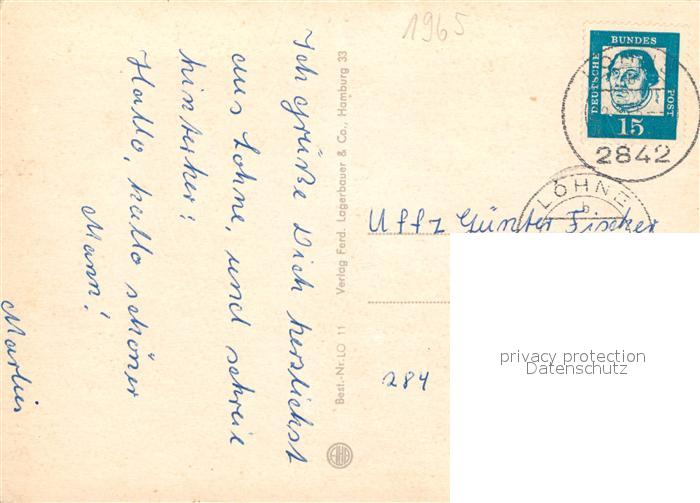 1965
Ich grüße Dich herzlichst
aus Lohne, und schreie
hinterher:
Hallo, hallo schöner
Mann!
Verlag Ferd. Lagerbauer & Co., Hamburg 33
Best.-Nr. LO 11
DEUTSCHE
BUNDES
POST
15
2842
LOHNE
Uffz Günter Fischer
284
privacy protection
Datenschutz